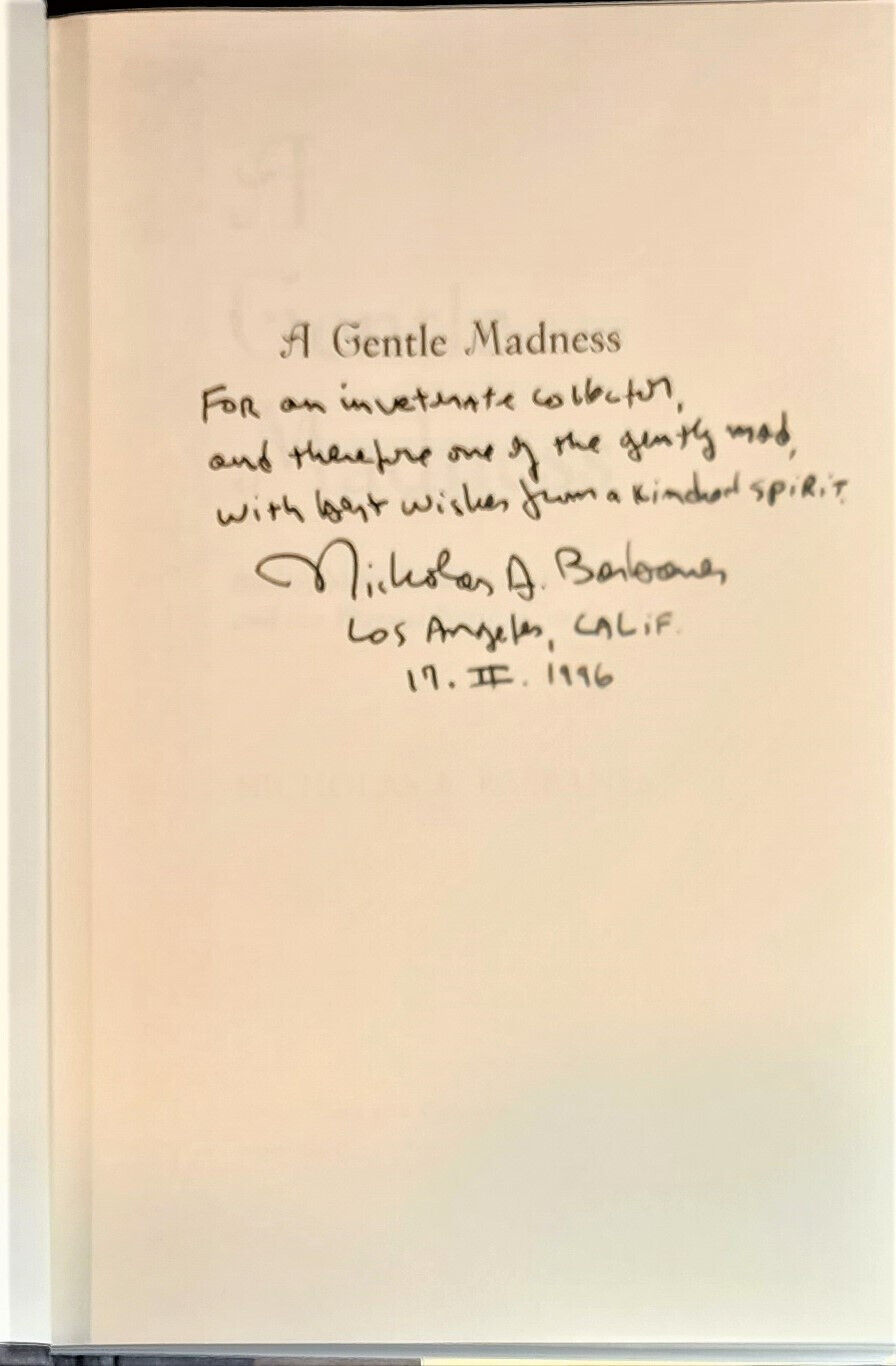 A Gentle Madness
FOR an inveterate collector,
and therefore one of the gently mad,
with best wishes from a kindred spiRiT.
Nicholas A. Basbanes
Los Angeles, CALiF.
17. II. 1996